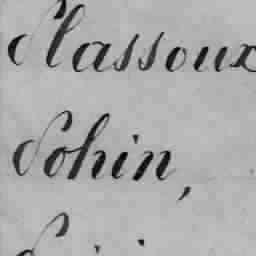 Plassoux
Pohin,